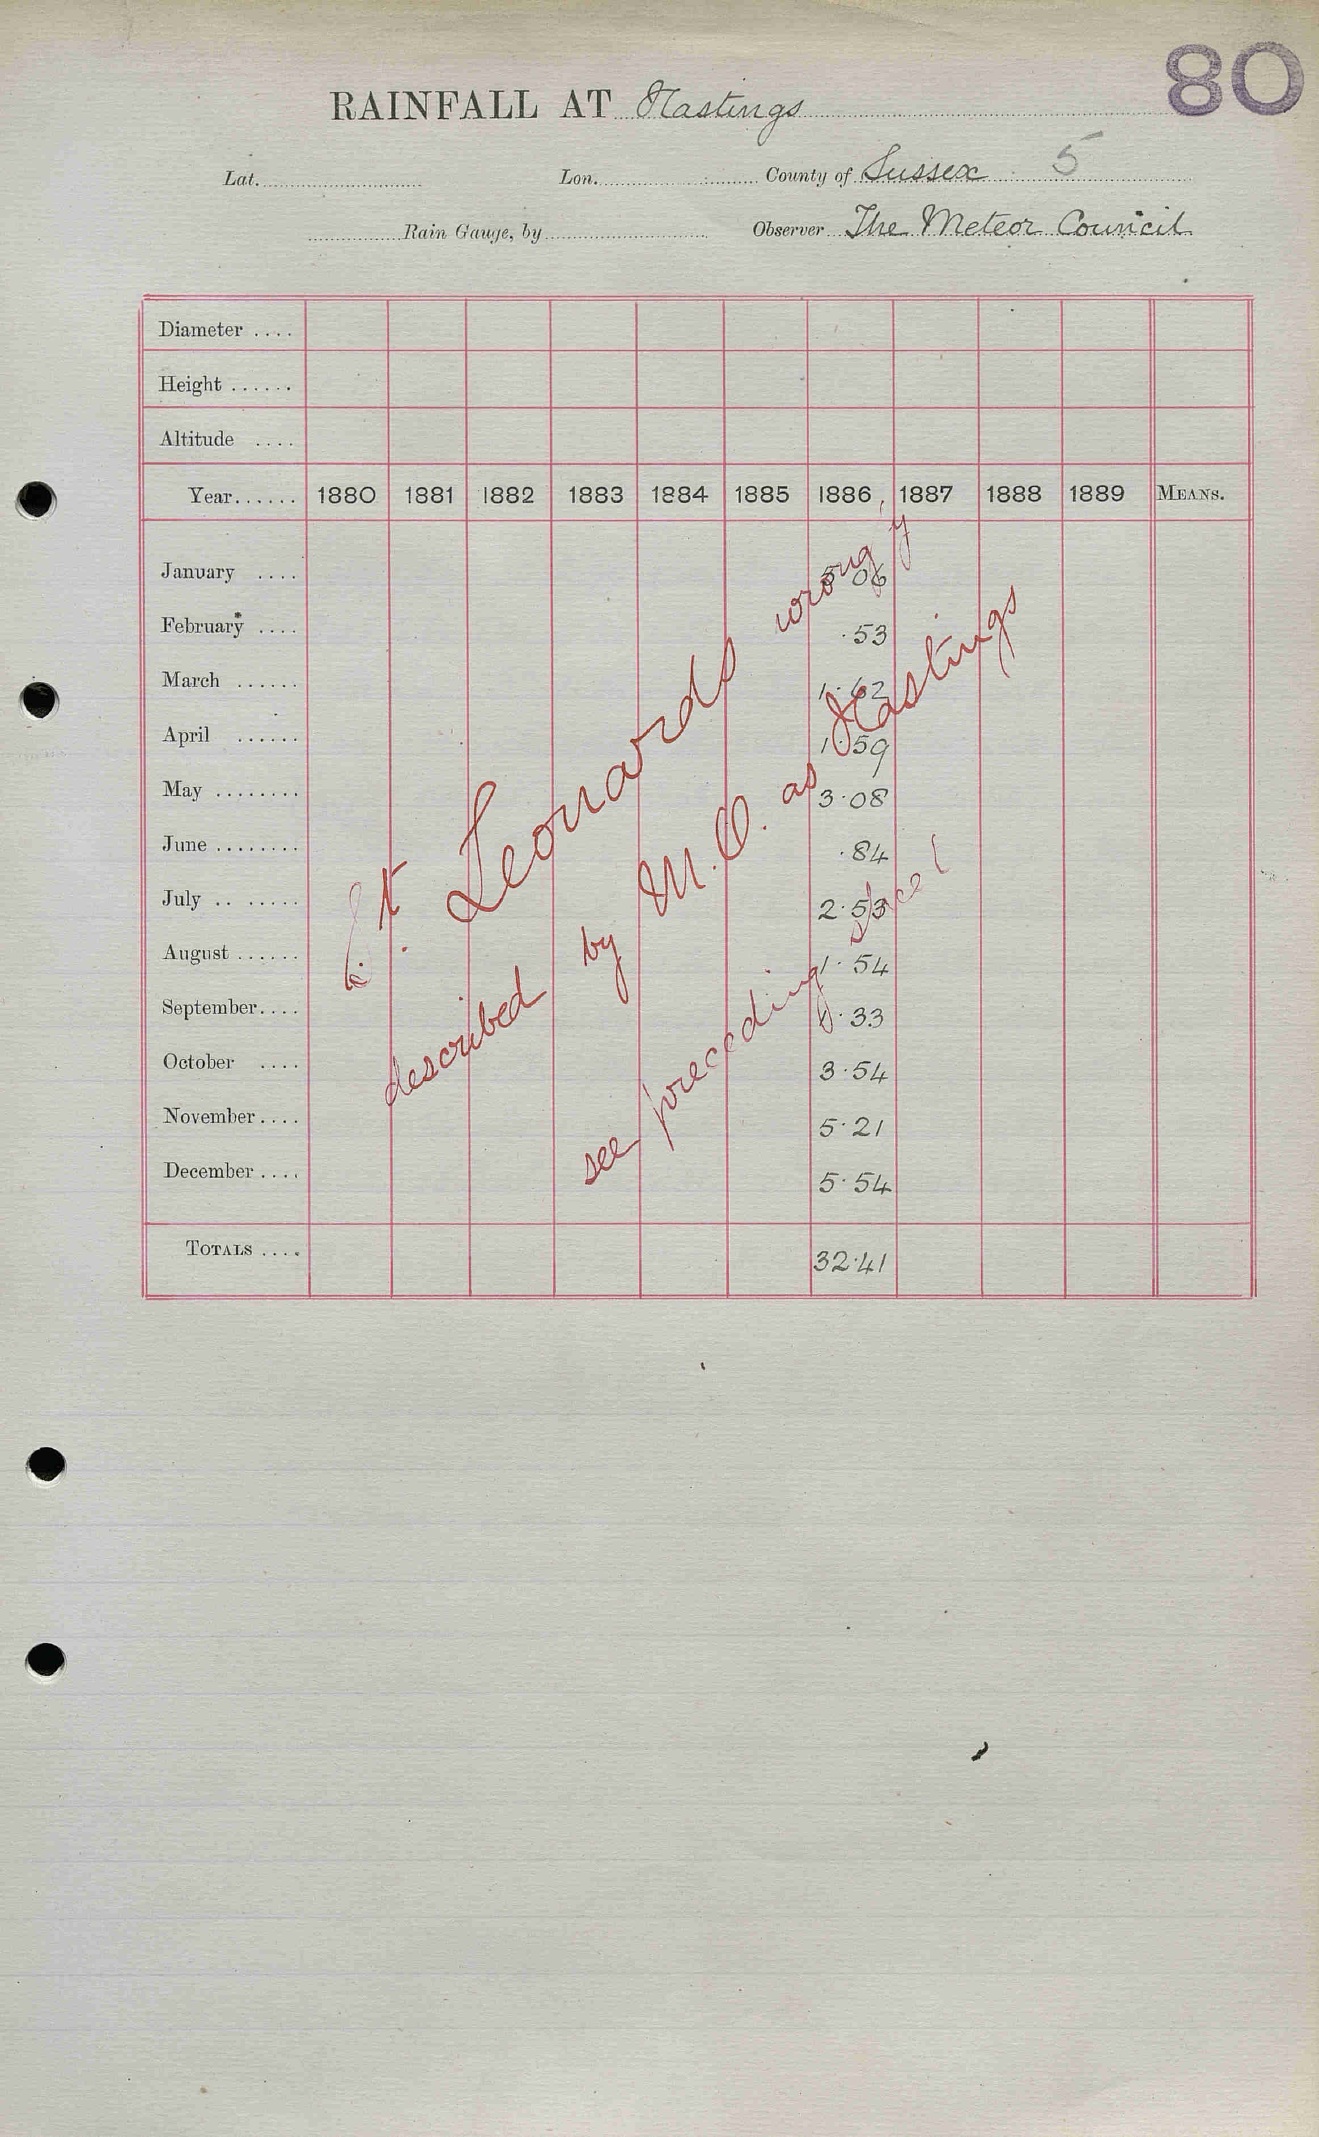 80
RAINFALL AT Hastings
Lat. Lon. County of Sussex 5
Rain Gauge, by Observer The Meteor Council
Diameter ....
Height ......
Altitude ....
Year...... 1880 1881 1882 1883 1884 1885 1886 1887 1888 1889 MEANS.
January .... 5.06
February .... .53
March ...... 1.62
April ...... 1.59
May ........ 3.08
June ........ .84
July .. ..... 2.53
August ...... 1.54
September.... 1.33
October .... 3.54
November.... 5.21
December .... 5.54
TOTALS .... 32.41
St. Leonards wrongly
described by M.O. as Hastings
see preceding